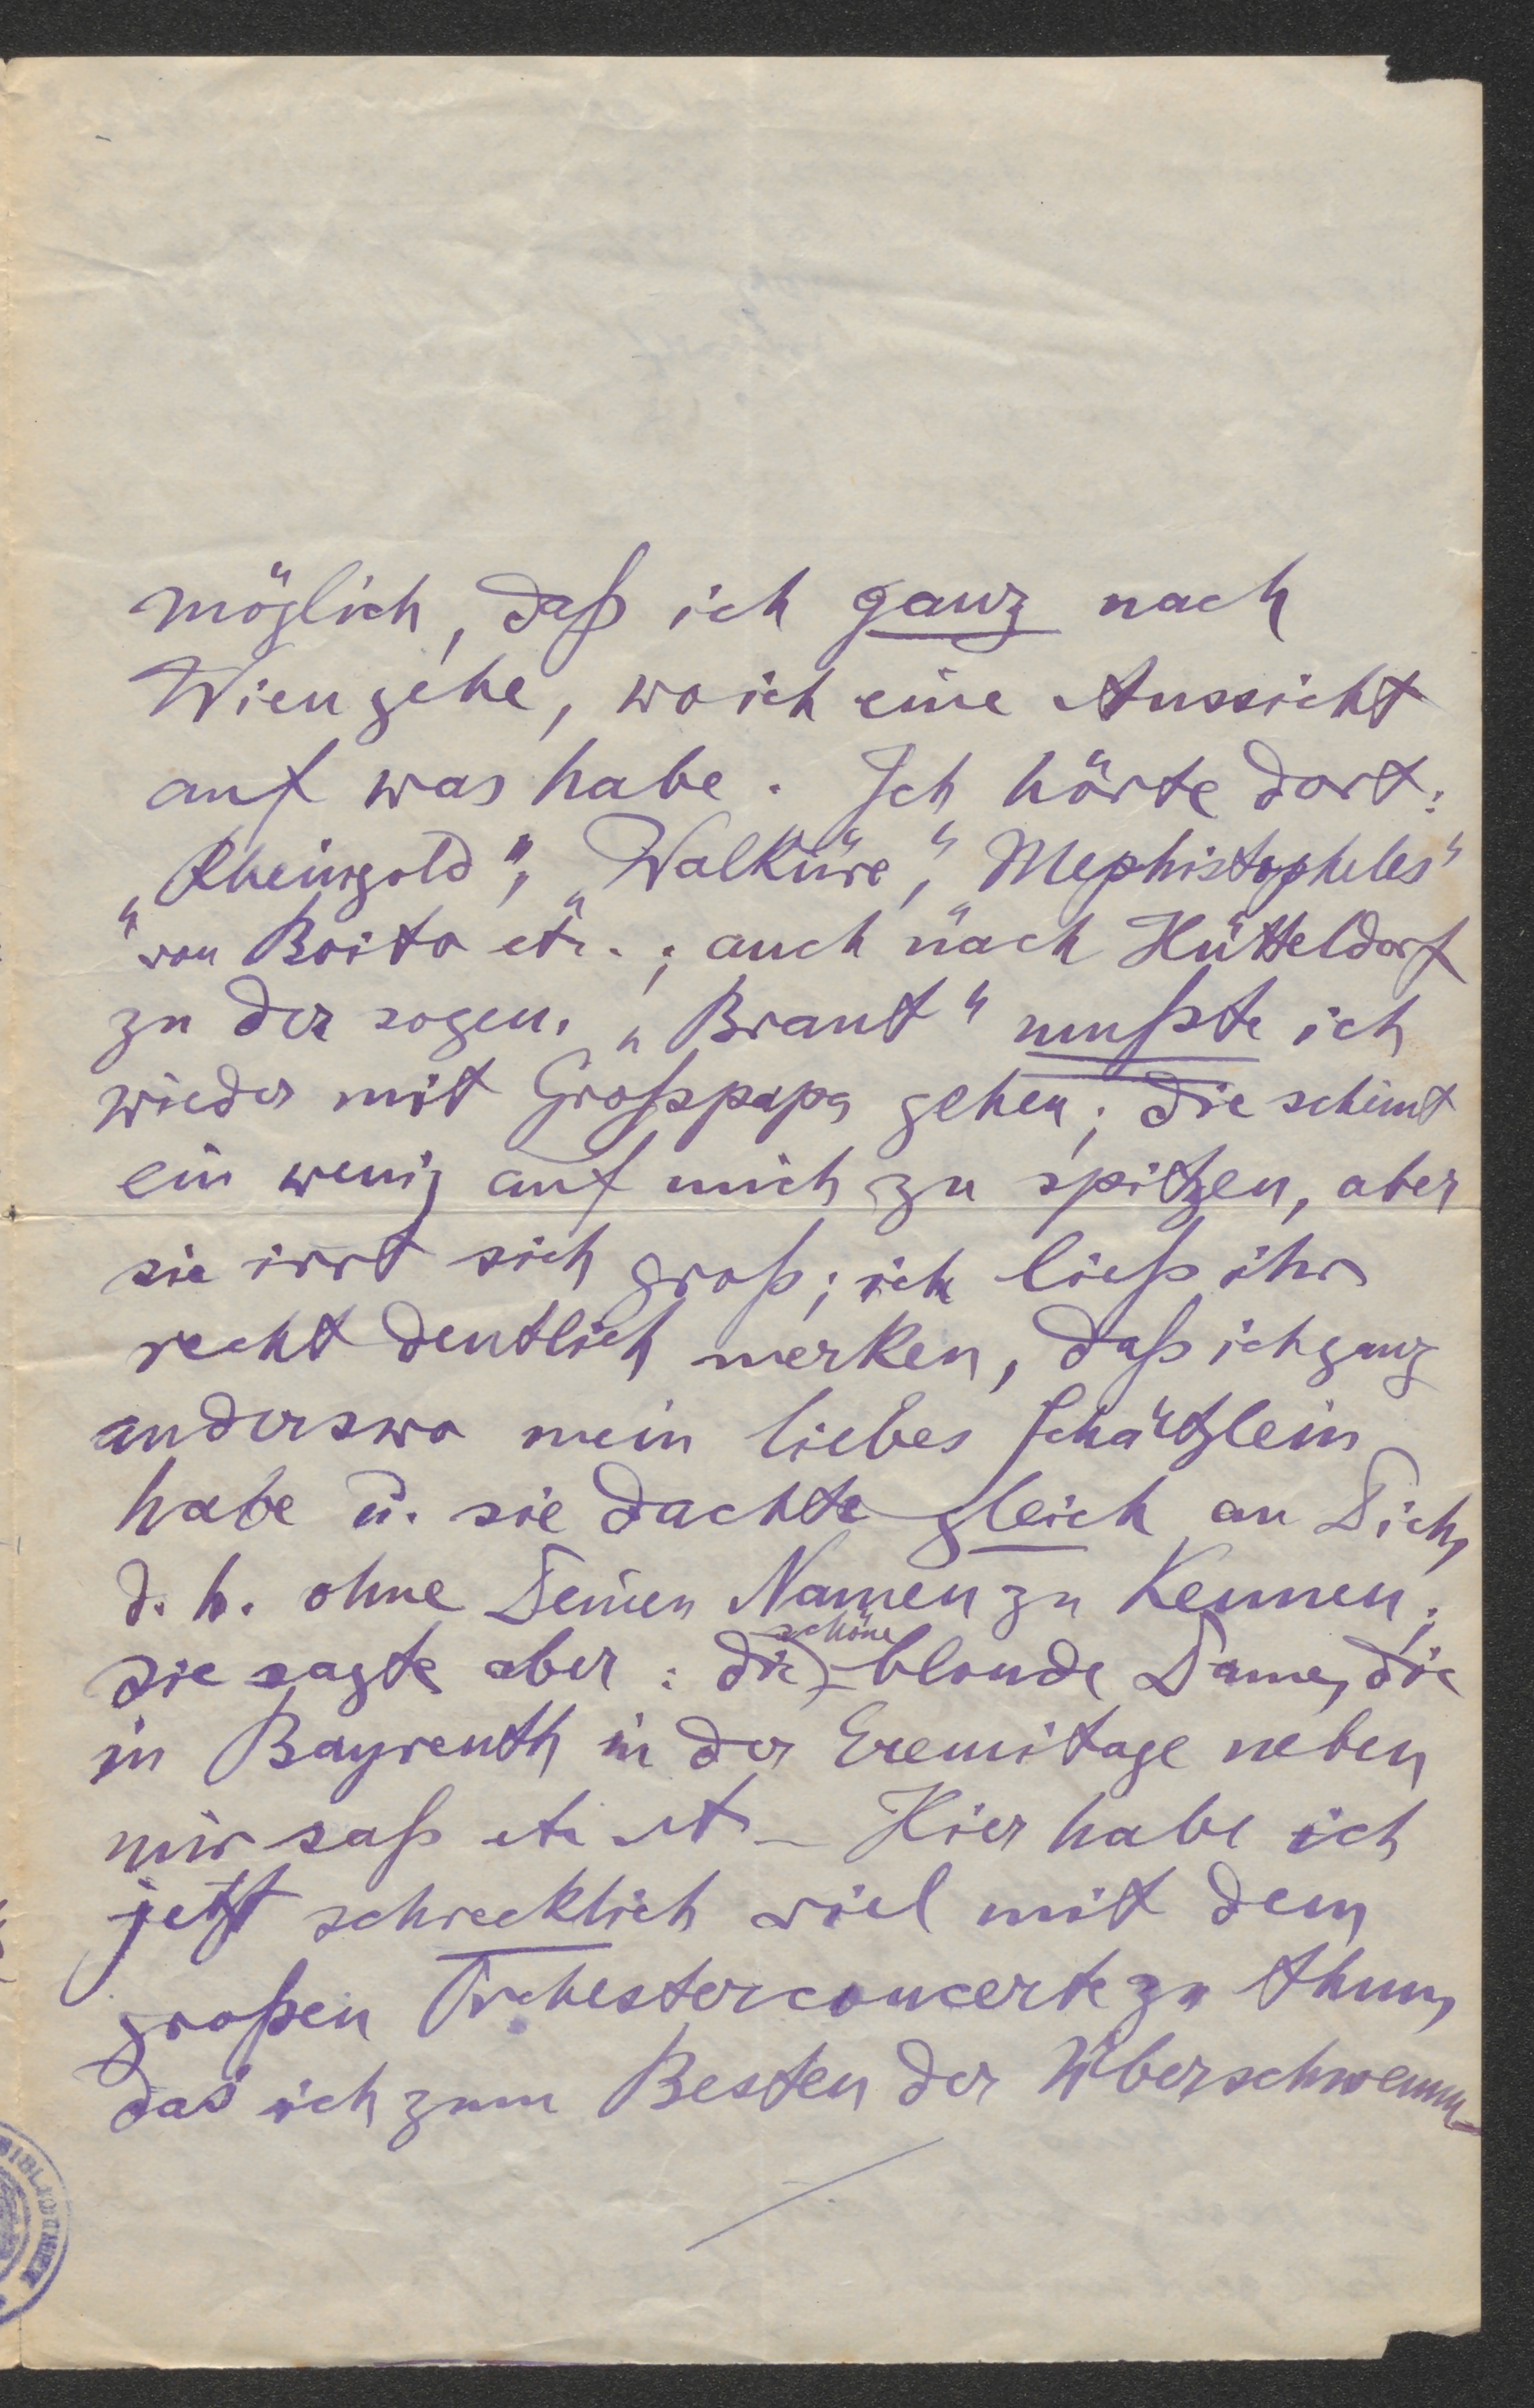 möglich, daß ich ganz nach
Wien gehe, wo ich eine Aussicht
auf was habe. Ich hörte dort:
„Rheingold", „Walküre", „Mephistopheles"
von Boito etc.; auch nach Hütteldorf
zu der sogen. „Braut" mußte ich
wieder mit Großpapa gehen; die scheint
ein wenig auf mich zu spitzen, aber
sie irrt sich groß; ich ließ ihr
recht deutlich merken, daß ich ganz
anderswo mein liebes Schätzlein
habe u. sie dachte gleich an Dich,
d. h. ohne Deinen Namen zu kennen;
sie sagte aber: die schöne blonde Dame, die
in Bayreuth in der Eremitage neben
mir saß etc etc – Hier habe ich
jetzt schrecklich viel mit dem
großen Orchesterconcerte zu thun,
das ich zum Besten der Überschwemm-
BIBLIOTHEK